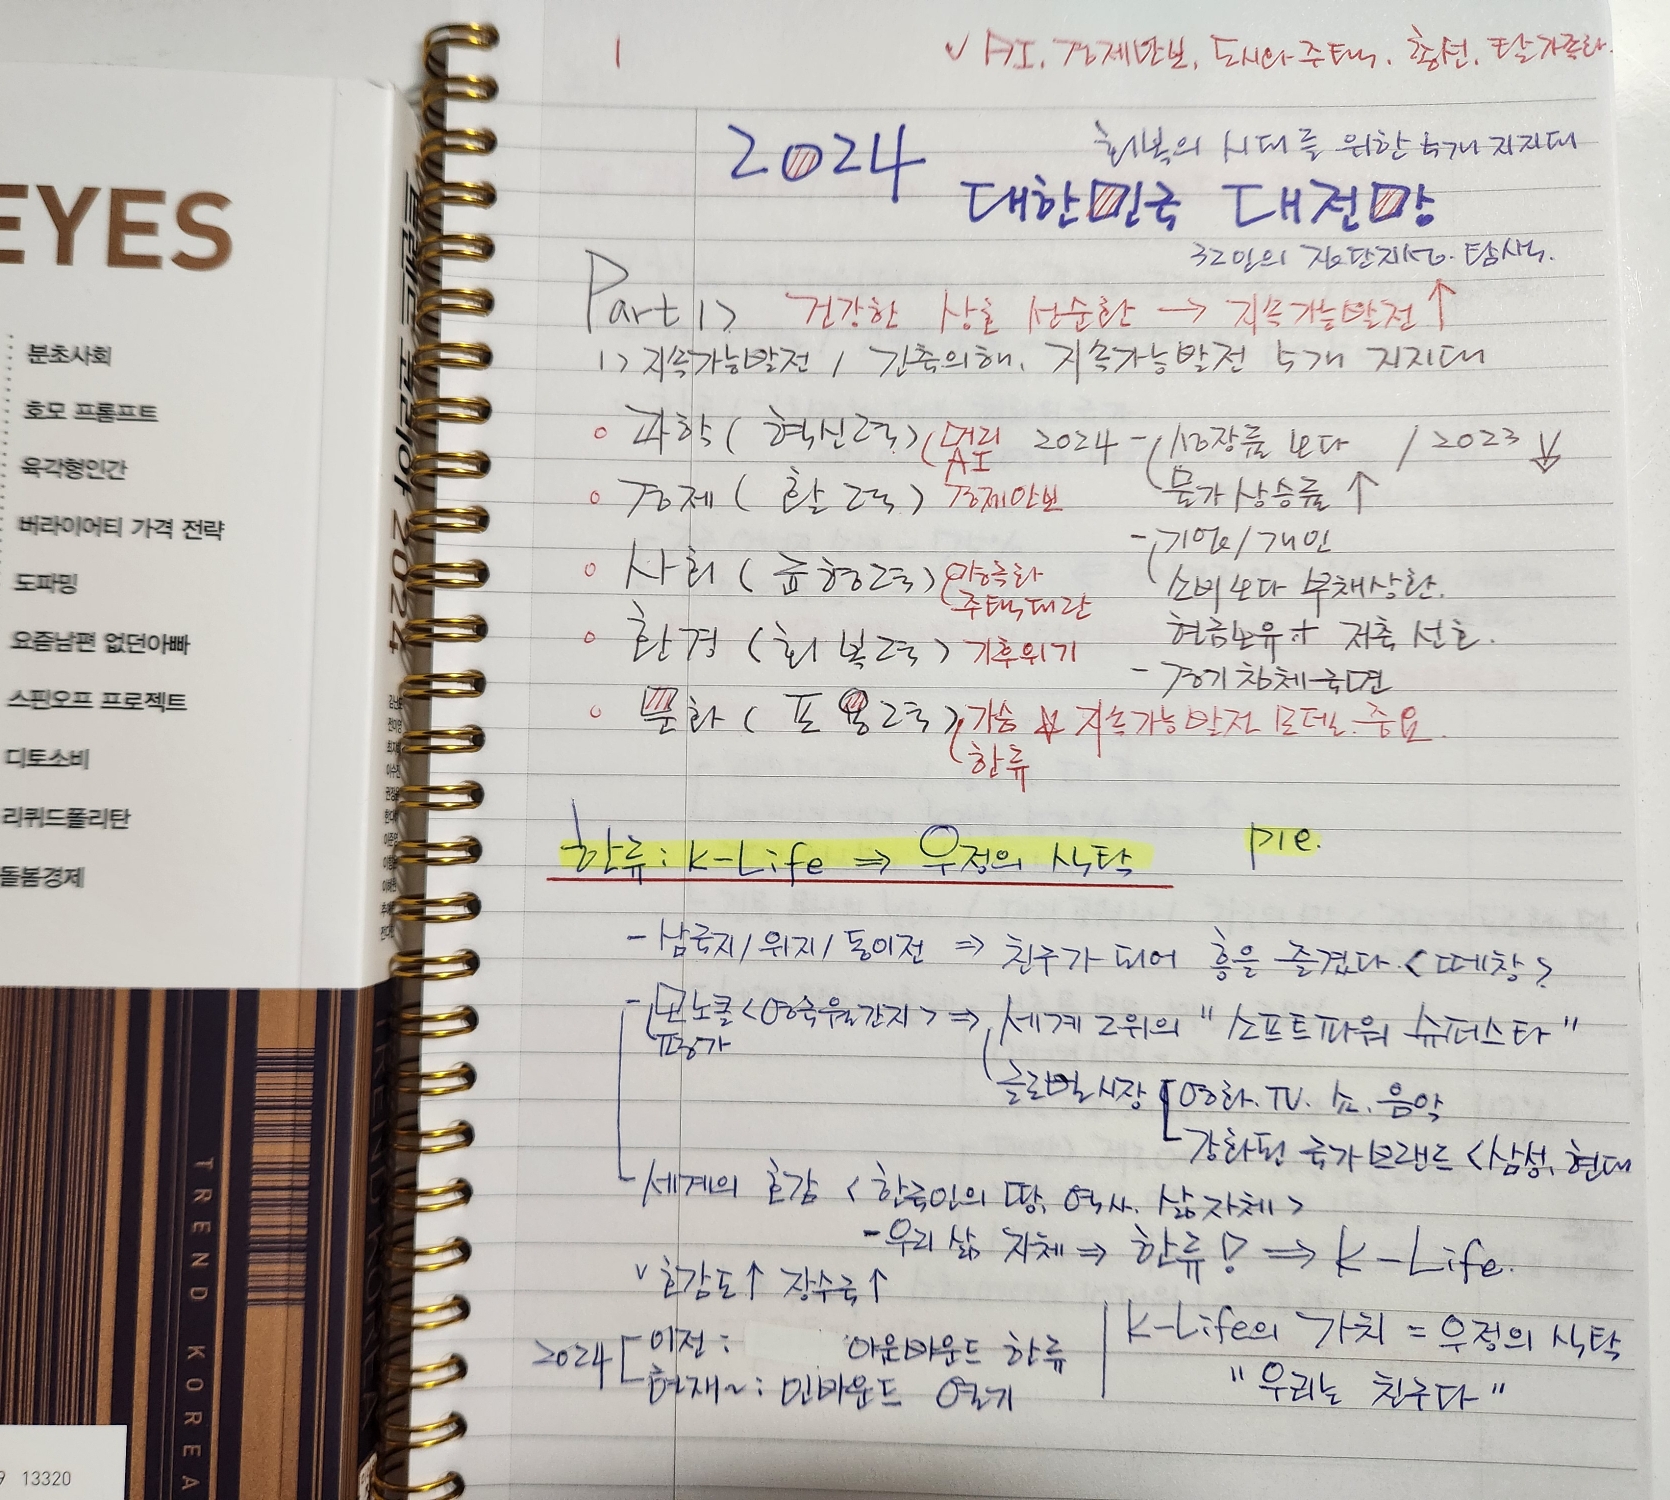 EYES
분초사회
호모 프롬프트
육각형인간
버라이어티 가격 전략
도파밍
요즘남편 없던아빠
스핀오프 프로젝트
디토소비
리퀴드폴리탄
돌봄경제
트렌드 코리아 2024
TREND KOREA
9 13320
1
✓ AI. 경제안보. 도시와 주택. 총선. 탈가족화.
2024
회복의 시대를 위한 5개 지지대
대한민국 대전망
32인의 집단지성. 탐색.
Part 1> 건강한 상호 선순환 → 지속가능발전↑
1> 지속가능발전 / 간축의해. 지속가능발전 5개 지지대
○ 과학 ( 혁신력 ) ( 머리 AI 2024 - 성장률 보다 / 2023 ↓
물가상승률 ↑
○ 경제 ( 활력 ) 경제안보
- 기업/개인
○ 사회 ( 균형력 ) 양극화 소비보다 부채상환.
주택대란
현금보유 + 저축 선호.
○ 환경 ( 회복력 ) 기후위기
- 경기침체국면
○ 문화 ( 포용력 ) 가슴 ↓ 지속가능발전 모델. 중요.
한류
한류 : K-Life ⇒ 우정의 식탁 P18.
- 삼국지/위지/동이전 ⇒ 친구가 되어 흥을 즐겼다. <떼창>
- 모노클 <영국월간지> ⇒ 세계 2위의 "소프트파워 슈퍼스타"
평가
글로벌시장 영화. TV. 쇼. 음악
강화된 국가브랜드 <삼성, 현대
- 세계의 호감 <한국인의 땅, 역사. 삶 자체>
- 우리 삶 자체 ⇒ 한류! ⇒ K-Life.
✓ 호감도↑ 장수국↑
2024 이전 : 아웃바운드 한류
현재~ : 인바운드 열기
K-Life의 가치 = 우정의 식탁
"우리는 친구다"